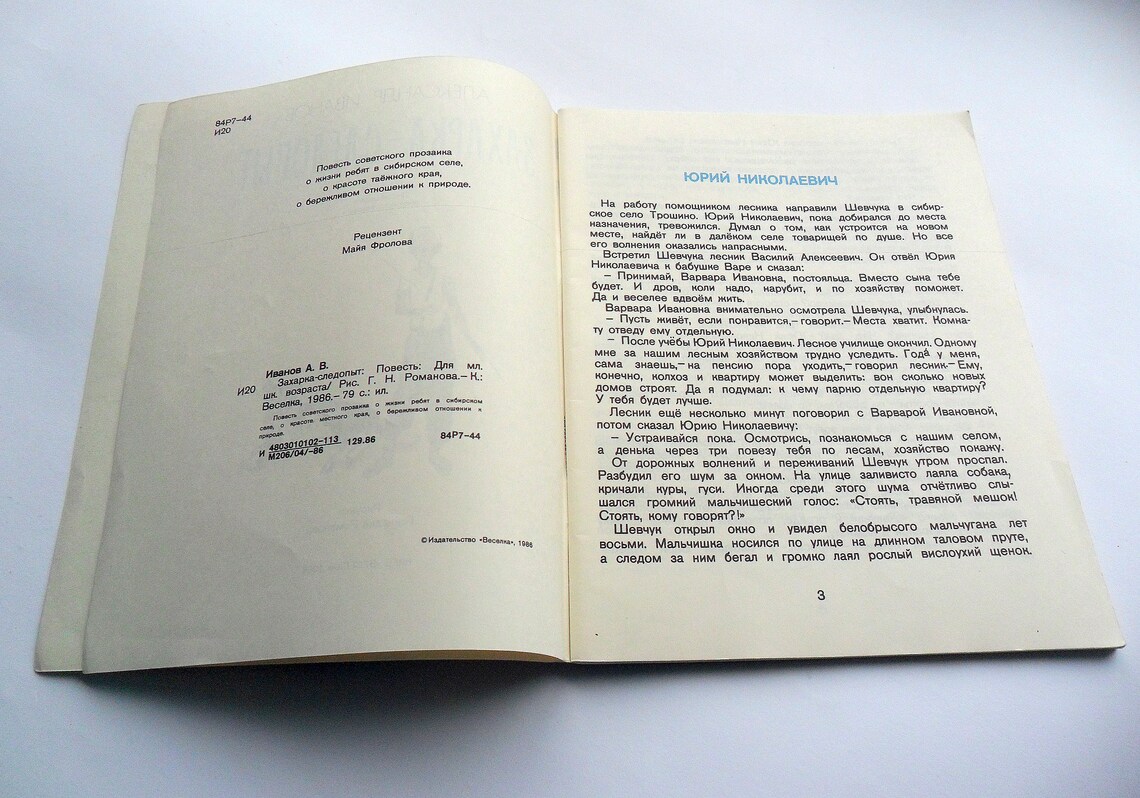 84Р7–44
И20
Повесть советского прозаика
о жизни ребят в сибирском селе,
о красоте таёжного края,
о бережливом отношении к природе.
Рецензент
Майя Фролова
Иванов А. В.
И20 Захарка-следопыт: Повесть: Для мл.
шк. возраста/ Рис. Г. Н. Романова.— К.:
Веселка, 1986.— 79 с.: ил.
Повесть советского прозаика о жизни ребят в сибирском
селе, о красоте местного края, о бережливом отношении к
природе.
И 4803010102–113 129.86 84Р7–44
М206/04/–86
© Издательство «Веселка», 1986
ЮРИЙ НИКОЛАЕВИЧ
На работу помощником лесника направили Шевчука в сибир-
ское село Трошино. Юрий Николаевич, пока добирался до места
назначения, тревожился. Думал о том, как устроится на новом
месте, найдёт ли в далёком селе товарищей по душе. Но все
его волнения оказались напрасными.
Встретил Шевчука лесник Василий Алексеевич. Он отвёл Юрия
Николаевича к бабушке Варе и сказал:
— Принимай, Варвара Ивановна, постояльца. Вместо сына тебе
будет. И дров, коли надо, нарубит, и по хозяйству поможет.
Да и веселее вдвоём жить.
Варвара Ивановна внимательно осмотрела Шевчука, улыбнулась.
— Пусть живёт, если понравится,— говорит.— Места хватит. Комна-
ту отведу ему отдельную.
— После учёбы Юрий Николаевич. Лесное училище окончил. Одному
мне за нашим лесным хозяйством трудно уследить. Года́ у меня,
сама знаешь,— на пенсию пора уходить,— говорил лесник.— Ему,
конечно, колхоз и квартиру может выделить: вон сколько новых
домов строят. Да я подумал: к чему парню отдельную квартиру?
У тебя будет лучше.
Лесник ещё несколько минут поговорил с Варварой Ивановной,
потом сказал Юрию Николаевичу:
— Устраивайся пока. Осмотрись, познакомься с нашим селом,
а денька через три повезу тебя по лесам, хозяйство покажу.
От дорожных волнений и переживаний Шевчук утром проспал.
Разбудил его шум за окном. На улице заливисто лаяла собака,
кричали куры, гуси. Иногда среди этого шума отчётливо слы-
шался громкий мальчишеский голос: «Стоять, травяной мешок!
Стоять, кому говорят?!»
Шевчук открыл окно и увидел белобрысого мальчугана лет
восьми. Мальчишка носился по улице на длинном таловом пруте,
а следом за ним бегал и громко лаял рослый вислоухий щенок.
3